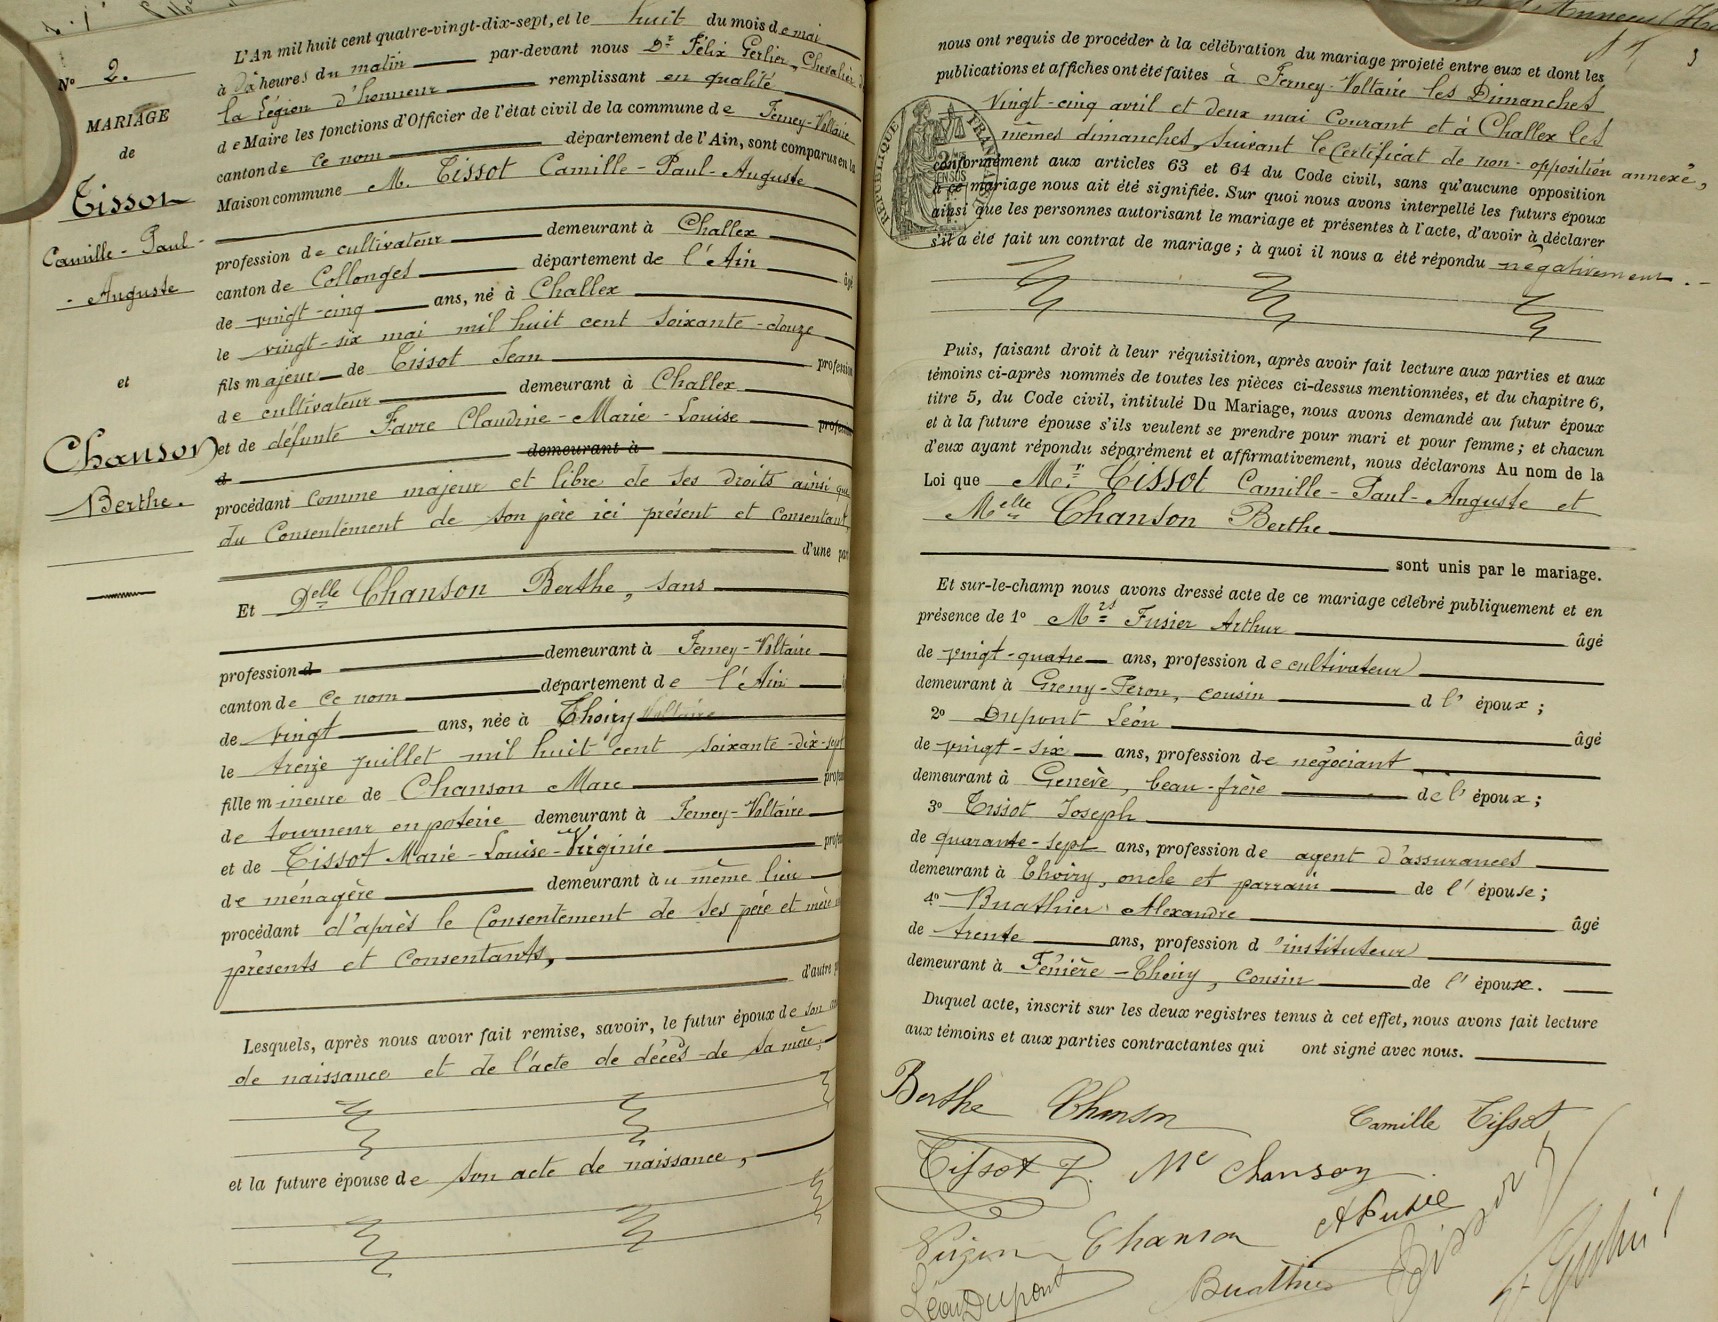 L'An mil huit cent quatre-vingt-dix-sept, et le huit du mois de mai
à heures du matin par-devant nous Dr Félix Gerlier, Chevalier
la Légion d'honneur remplissant en qualité
de Maire les fonctions d'Officier de l'état civil de la commune de Ferney-Voltaire
canton de ce nom département de l'Ain, sont comparus en la
Maison commune M. Tissot Camille-Paul-Auguste
profession de cultivateur demeurant à Challex
canton de Collonges département de l'Ain âgé
de vingt-cinq ans, né à Challex
le vingt-six mai mil huit cent soixante-douze
fils majeur de Tissot Jean profession
de cultivateur demeurant à Challex
et de défunte Favre Claudine-Marie-Louise profession
d demeurant à
procédant comme majeur et libre de ses droits ainsi que
du Consentement de son père ici présent et Consentant,
d'une par
Et Delle Chanson Berthe, sans
profession d demeurant à Ferney-Voltaire
canton de ce nom département de l'Ain
de vingt ans, née à Thoiry Voltaire
le treize juillet mil huit cent soixante-dix-sept
fille mineure de Chanson Marc profes
de tourneur en poterie demeurant à Ferney-Voltaire
et de Tissot Marie-Louise-Virginie profes
de ménagère demeurant àu même lieu
procédant d'après le Consentement de ses père et mère
présents et Consentants,
d'autre p
Lesquels, après nous avoir fait remise, savoir, le futur époux de son
de naissance et de l'acte de décès de sa mère,
et la future épouse de son acte de naissance,
No 2.
MARIAGE
de
Tissot
Camille-Paul-
-Auguste
et
Chanson
Berthe.
nous ont requis de procéder à la célébration du mariage projeté entre eux et dont les
publications et affiches ont été faites à Ferney-Voltaire les Dimanches
vingt-cinq avril et deux mai Courant et à Challex les
mêmes dimanches, suivant le Certificat de non-opposition annexé,
conformément aux articles 63 et 64 du Code civil, sans qu'aucune opposition
à ce mariage nous ait été signifiée. Sur quoi nous avons interpellé les futurs époux
ainsi que les personnes autorisant le mariage et présentes à l'acte, d'avoir à déclarer
s'il a été fait un contrat de mariage ; à quoi il nous a été répondu négativement.
Puis, faisant droit à leur réquisition, après avoir fait lecture aux parties et aux
témoins ci-après nommés de toutes les pièces ci-dessus mentionnées, et du chapitre 6,
titre 5, du Code civil, intitulé Du Mariage, nous avons demandé au futur époux
et à la future épouse s'ils veulent se prendre pour mari et pour femme ; et chacun
d'eux ayant répondu séparément et affirmativement, nous déclarons Au nom de la
Loi que Mr Tissot Camille-Paul-Auguste et
Melle Chanson Berthe
sont unis par le mariage.
Et sur-le-champ nous avons dressé acte de ce mariage célébré publiquement et en
présence de 1º Mrs Fusier Arthur âgé
de vingt-quatre ans, profession de cultivateur
demeurant à Greny-Peron, cousin d l' époux ;
2º Dupont Léon âgé
de vingt-six ans, profession de négociant
demeurant à Genève, beau-frère de l' époux ;
3º Tissot Joseph
de quarante-sept ans, profession de agent d'assurances
demeurant à Thoiry, oncle et parrain de l' épouse ;
4º Buathier Alexandre âgé
de trente ans, profession d'instituteur
demeurant à Fenière-Thoiry, cousin de l' époux.
Duquel acte, inscrit sur les deux registres tenus à cet effet, nous avons fait lecture
aux témoins et aux parties contractantes qui ont signé avec nous.
Berthe Chanson Camille Tissot
Tissot J. Mc Chanson
Chanson
Léon Dupont Buathier
RÉPUBLIQUE FRANÇAISE